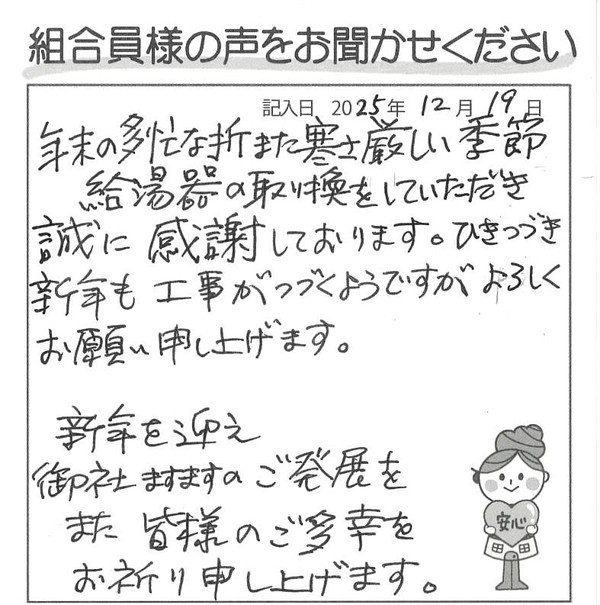 組合員様の声をお聞かせください
記入日 2025年 12月 19日
年末の多忙な折また寒さ厳しい季節
給湯器の取り換をしていただき
誠に感謝しております。ひきつづき
新年も工事がつづくようですがよろしく
お願い申し上げます。
新年を迎え
御社ますますのご発展を
また皆様のご多幸を
お祈り申し上げます。
安心